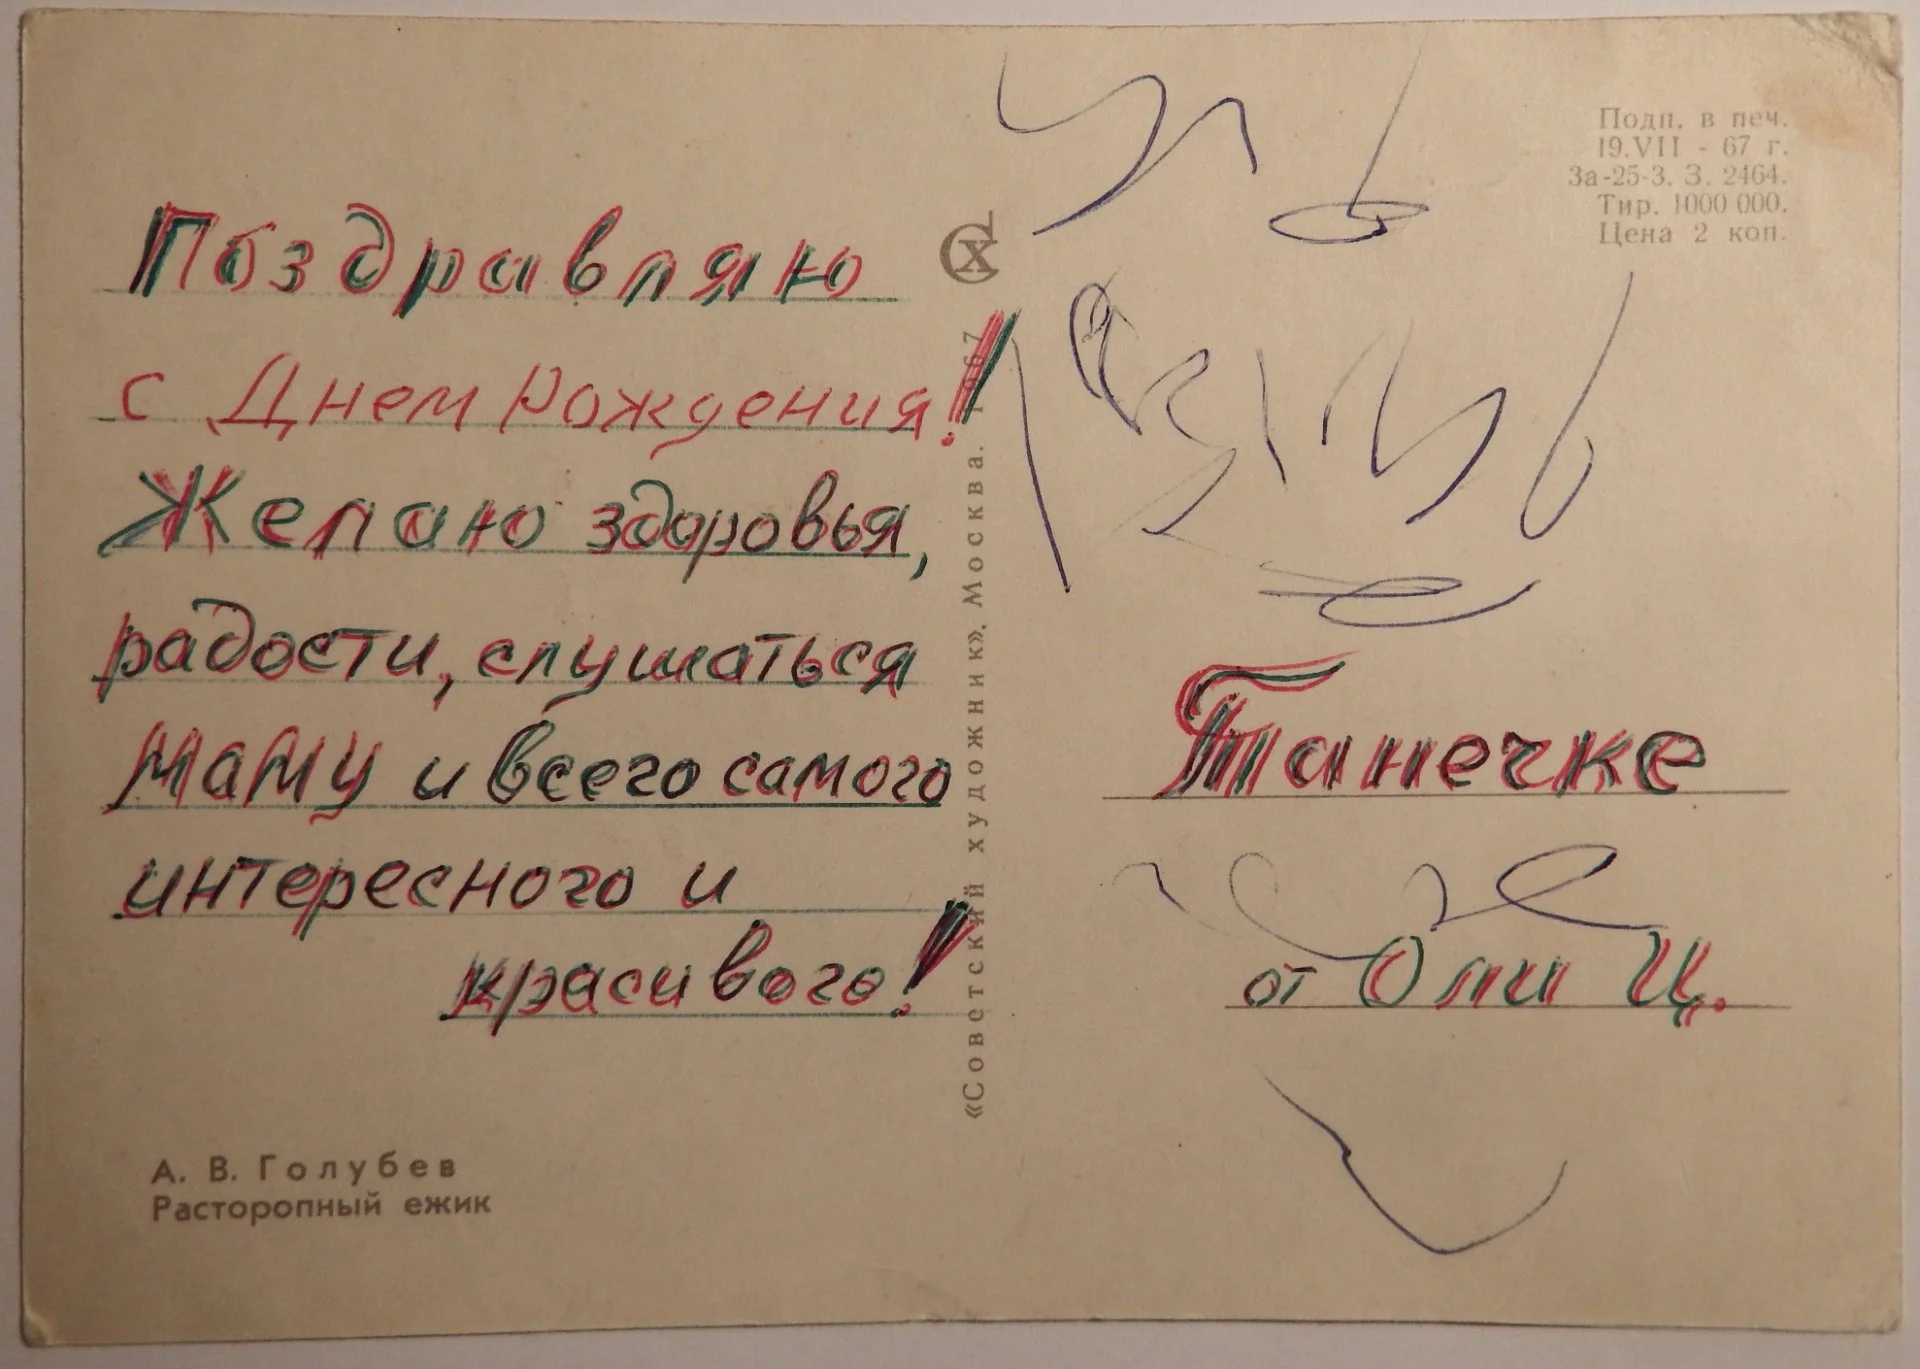 Поздравляю
с Днем рождения!
Желаю здоровья,
радости, слушаться
маму и всего самого
интересного и
красивого!
А. В. Голубев
Расторопный ежик
«Советский художник». Москва. 1967
Подп. в печ.
19.VII - 67 г.
За-25-3. З. 2464.
Тир. 1000 000.
Цена 2 коп.
Танечке
от Оли Ц.